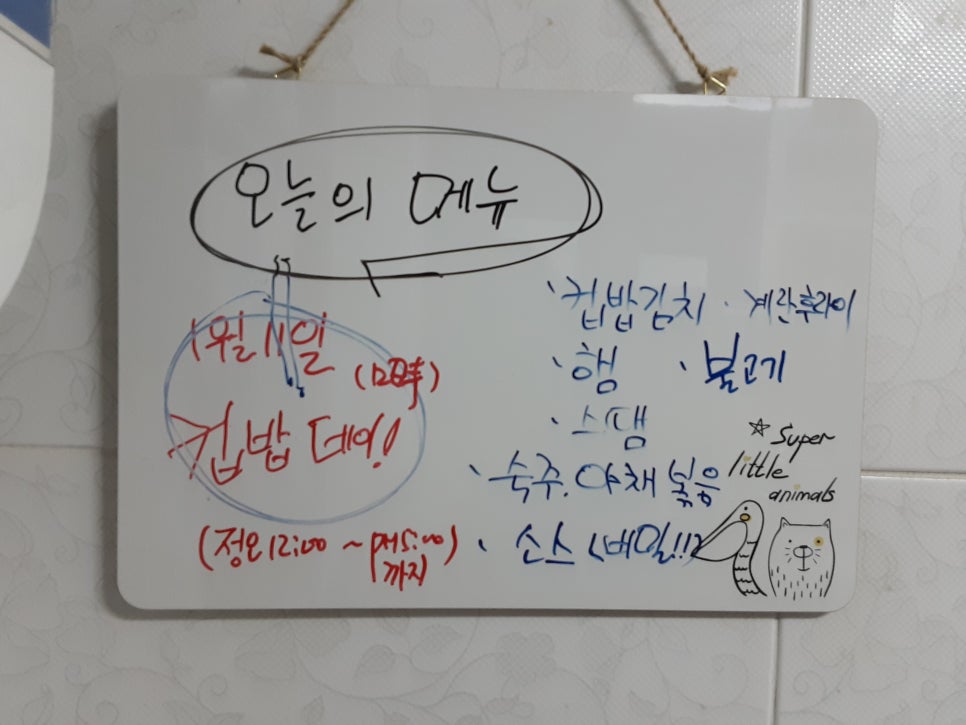 오늘의 메뉴
1월 11일
컵밥 데이!
(정오 12:00 ~ PM 5:00)
까지
· 컵밥김치 · 계란후라이
· 햄 · 불고기
· 스땜
· 숙주.야채 볶음
· 소스 (비밀!!)
☆ Super
little
animals